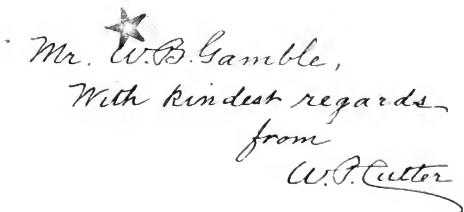 Mr. W.B. Gamble,
With kindest regards
from
W.P. Cutter